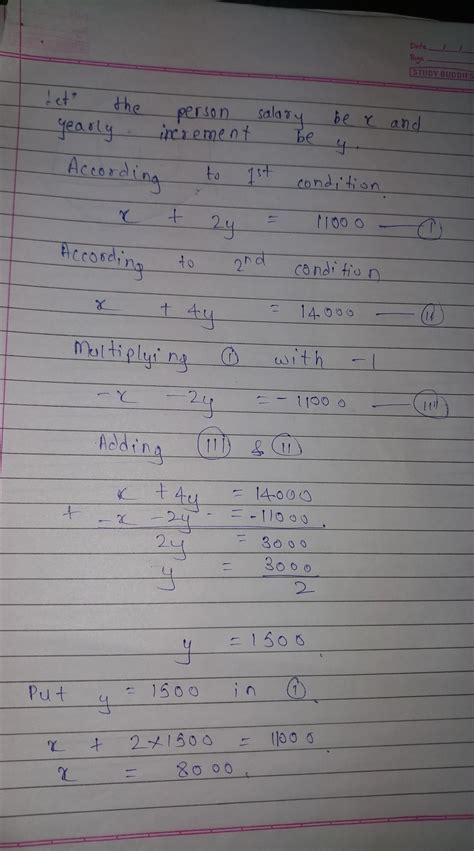 Date / /
Page
STUDY BUDDIES
Let the person salary be x and
yearly increment be y.
According to 1st condition
x + 2y = 11000 — (I)
According to 2nd condition
x + 4y = 14000 — (II)
Multiplying (I) with -1
-x -2y = -11000 — (III)
Adding (III) & (II)
x + 4y = 14000
+ -x - 2y = -11000.
2y = 3000
y = 3000
2
y = 1500
Put y = 1500 in (I).
x + 2×1500 = 11000
x = 8000.